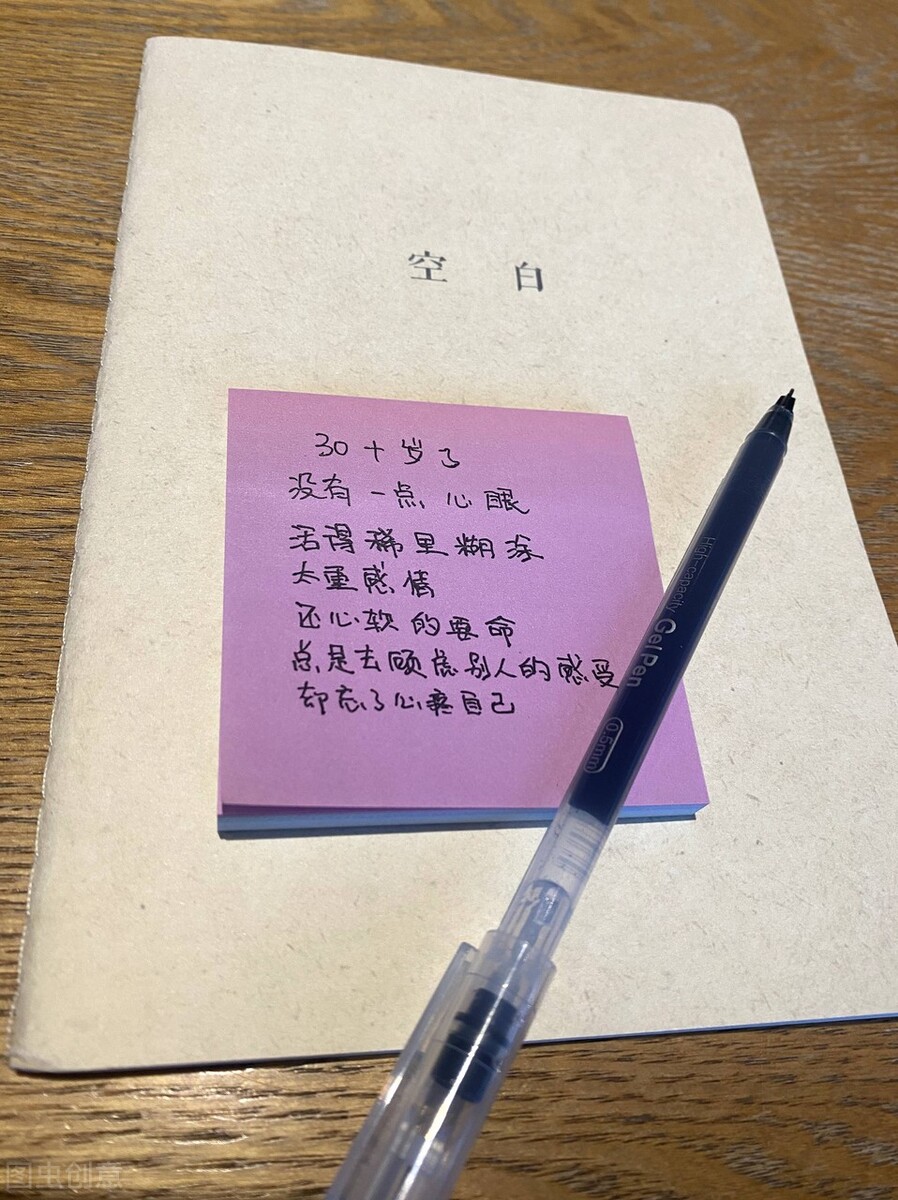 空白
30+岁了
没有一点心眼
活得稀里糊涂
太重感情
还心软的要命
总是去顾虑别人的感受
却忘了心疼自己
High-capacity Gel Pen 0.5mm
图虫创意